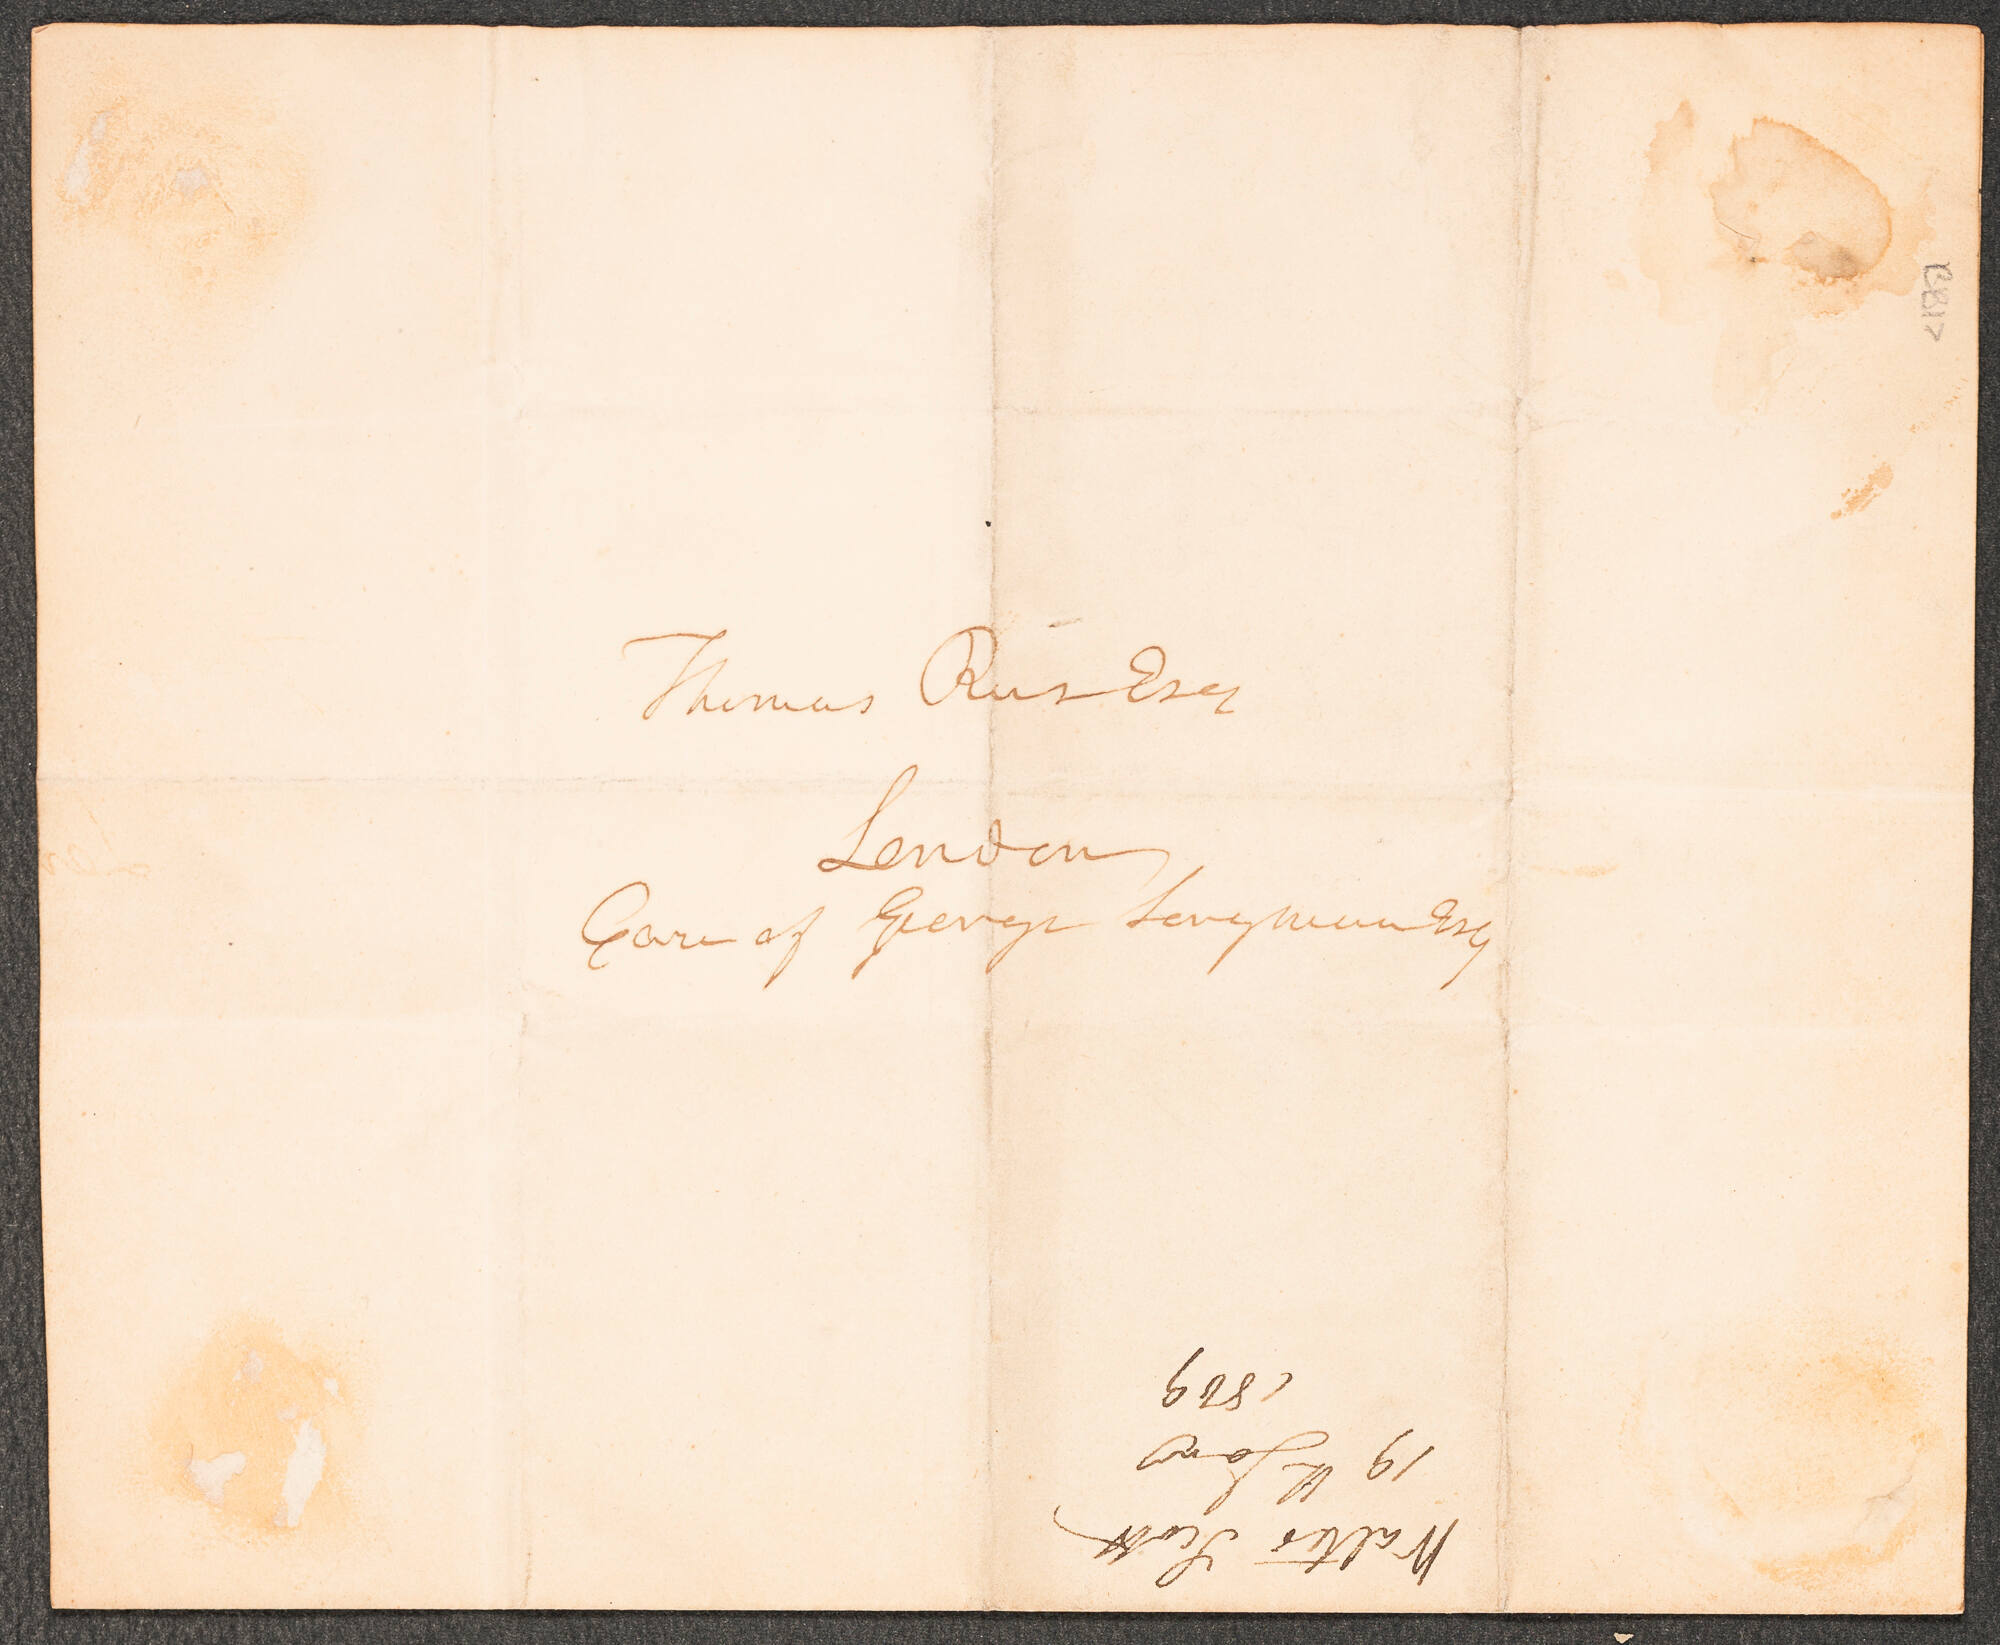 Thomas Rees Esq
London
Care of George Longman Esq
Walter Scott
19th Jany
1809